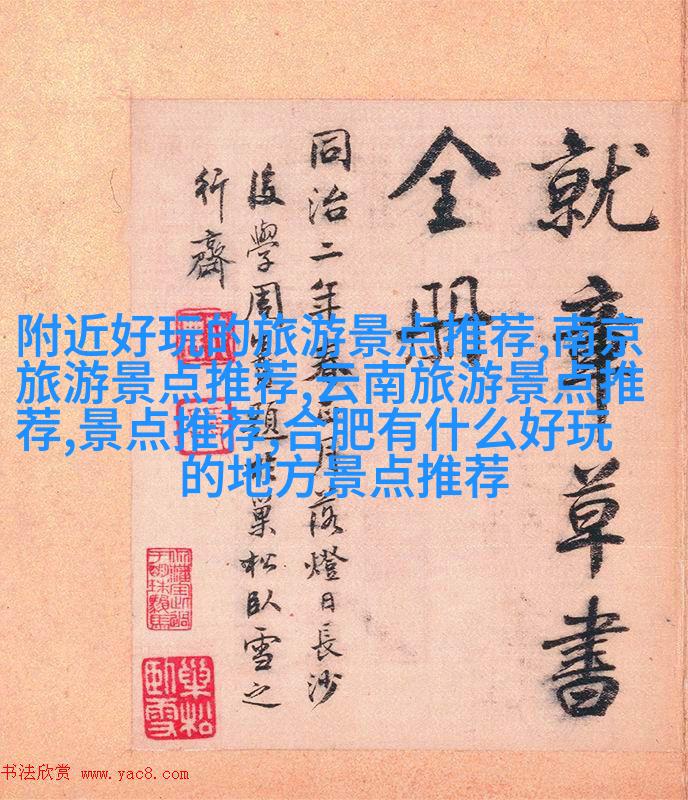 就章草書
全册
同治二年春正月落燈日長沙
後學周題於巢松臥雪之
行齋
附近好玩的旅游景点推荐,南京
旅游景点推荐,云南旅游景点推
荐,景点推荐,合肥有什么好玩
的地方景点推荐
巢松
臥雪
书法欣赏 www.yac8.com